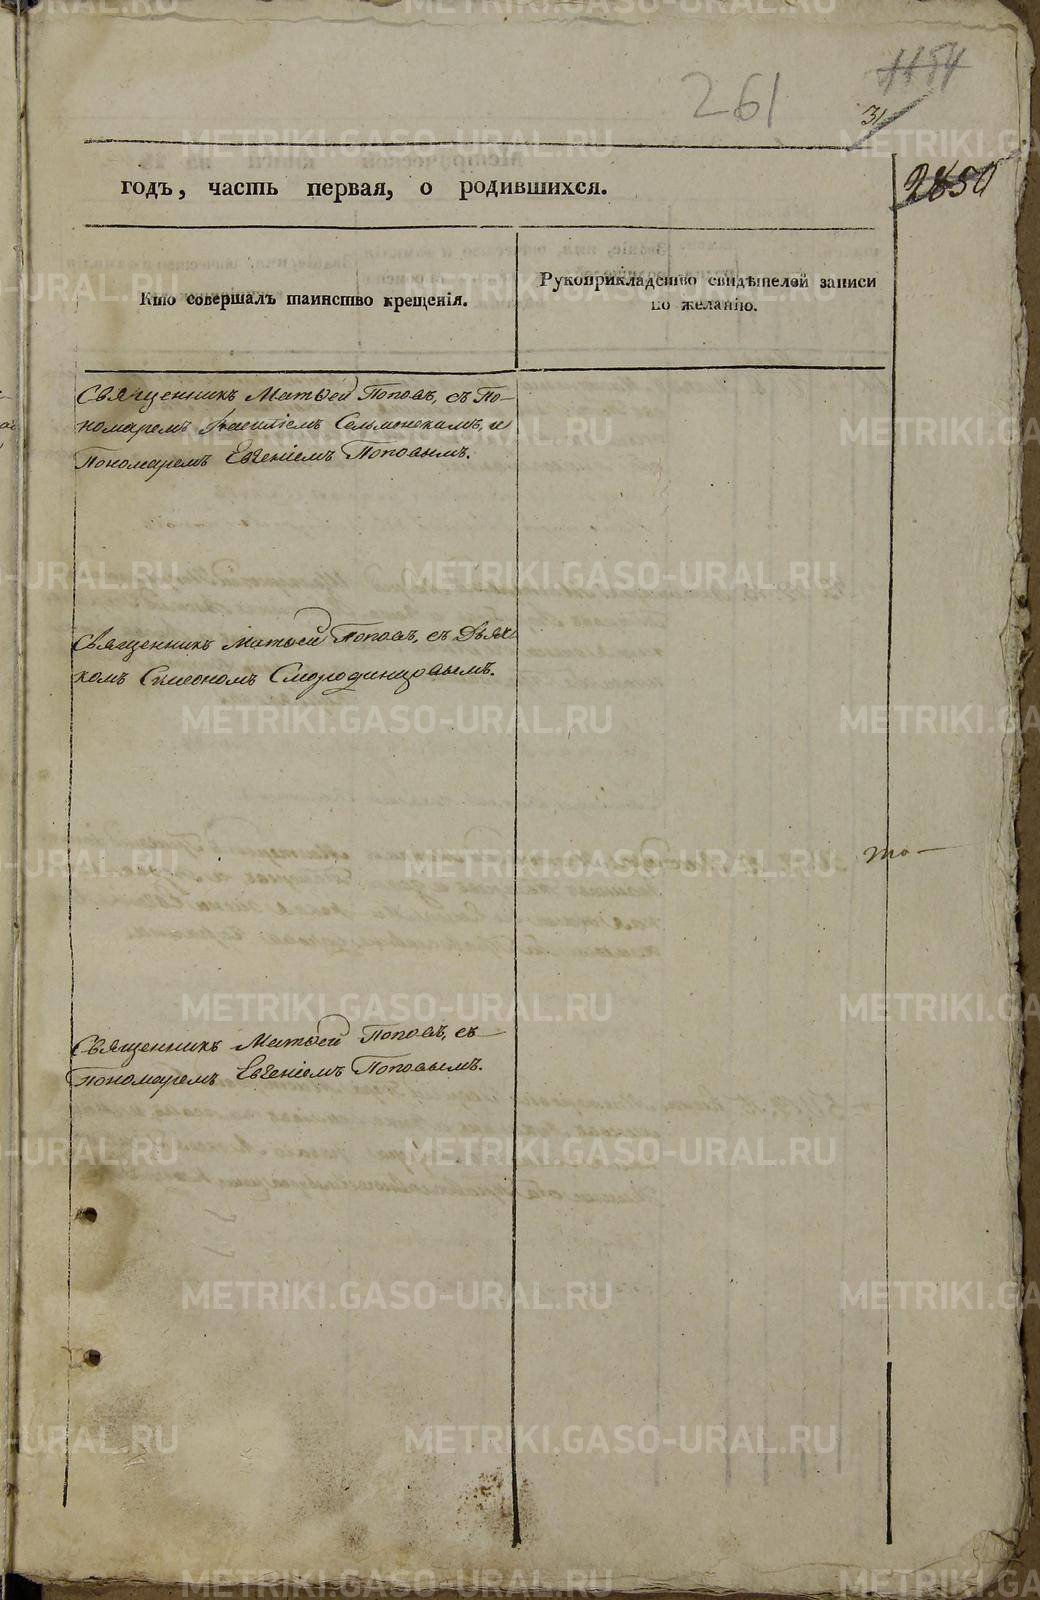 261
1154
31
2850
годъ, часть первая, о родившихся.
Кто совершалъ таинство крещенія.
Рукоприкладство свидѣтелей записи
по желанію.
Священникъ Матѳей Поповъ, съ По-
номаремъ Василіемъ Сельменскимъ, и
Пономаремъ Евгеніемъ Поповымъ.
Священникъ Матѳей Поповъ, съ Дьяч
комъ Симеономъ Смородинцовымъ.
то-
Священникъ Матѳей Поповъ, съ
Пономаремъ Евгеніемъ Поповымъ.
METRIKI.GASO-URAL.RU